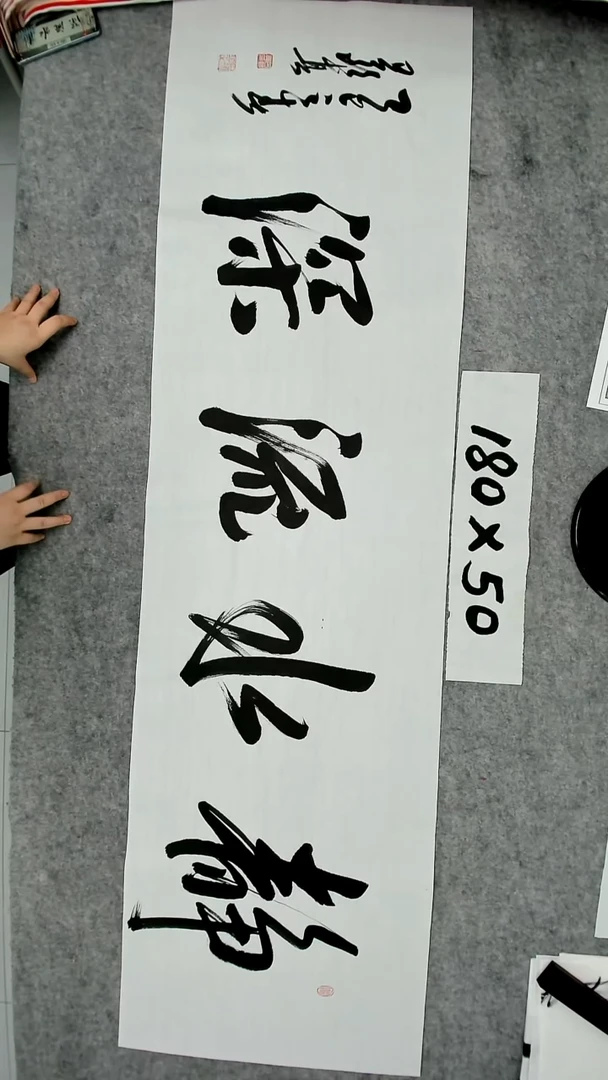 静水流深
180×50